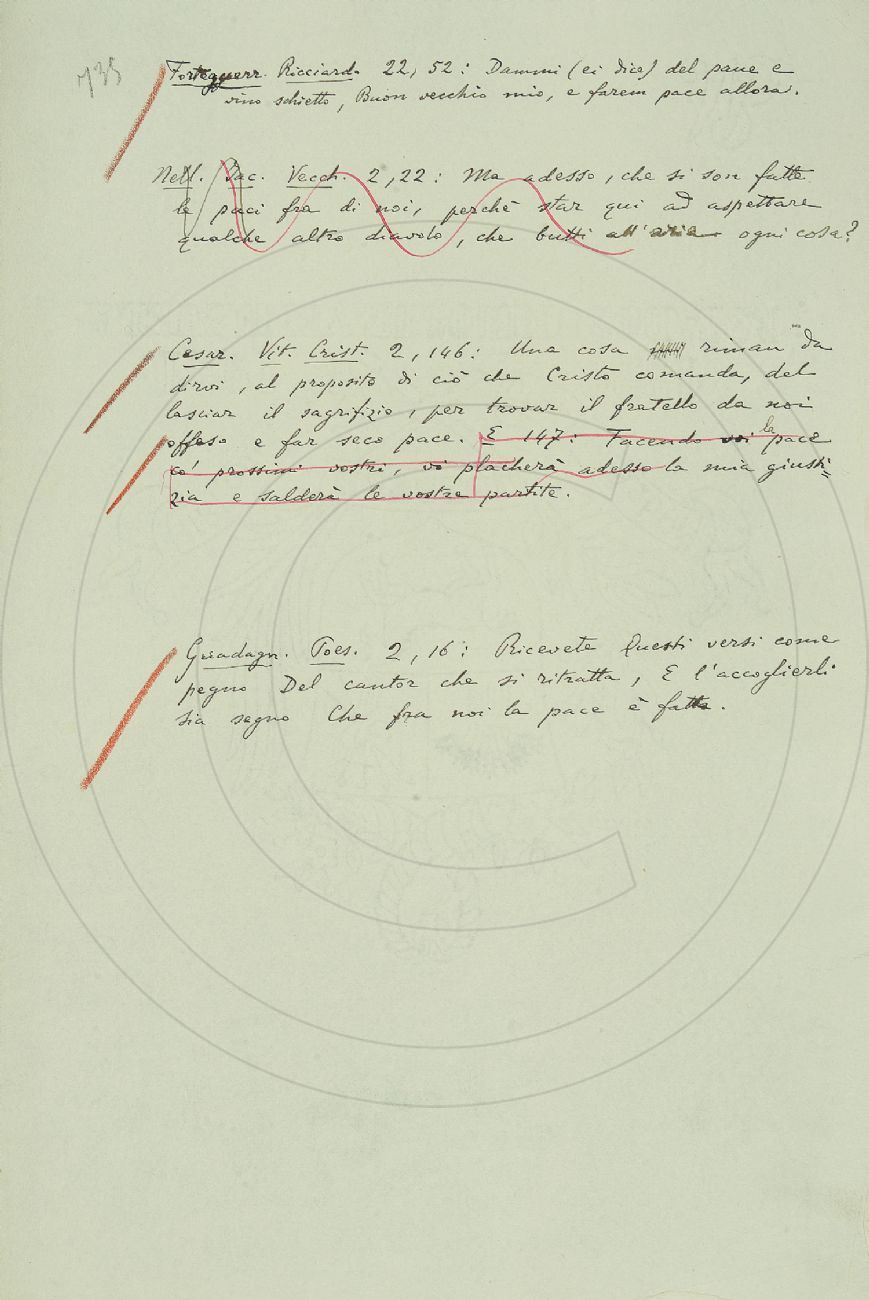 735
Forteguerr. Ricciard. 22, 52: Dammi (ei dice) del pane e
vino schietto, Buon vecchio mio, e farem pace allora.
Nell. Iac. Vecch. 2, 22: Ma adesso, che si son fatte
le paci fra di noi, perchè star qui ad aspettare
qualche altro diavolo, che butti all'aria ogni cosa?
Cesar. Vit. Crist. 2, 146: Una cosa riman da
dirvi, al proposito di ciò che Cristo comanda, del
lasciar il sagrifizio, per trovar il fratello da noi
offeso e far seco pace. E 147: Facendo voi la pace
co' prossimi vostri, vi placherà adesso la mia giusti=
zia e salderà le vostre partite.
Guadagn. Poes. 2, 16: Ricevete Questi versi come
pegno Del cantor che si ritratta, E l'accoglierli
sia segno Che fra noi la pace è fatta.